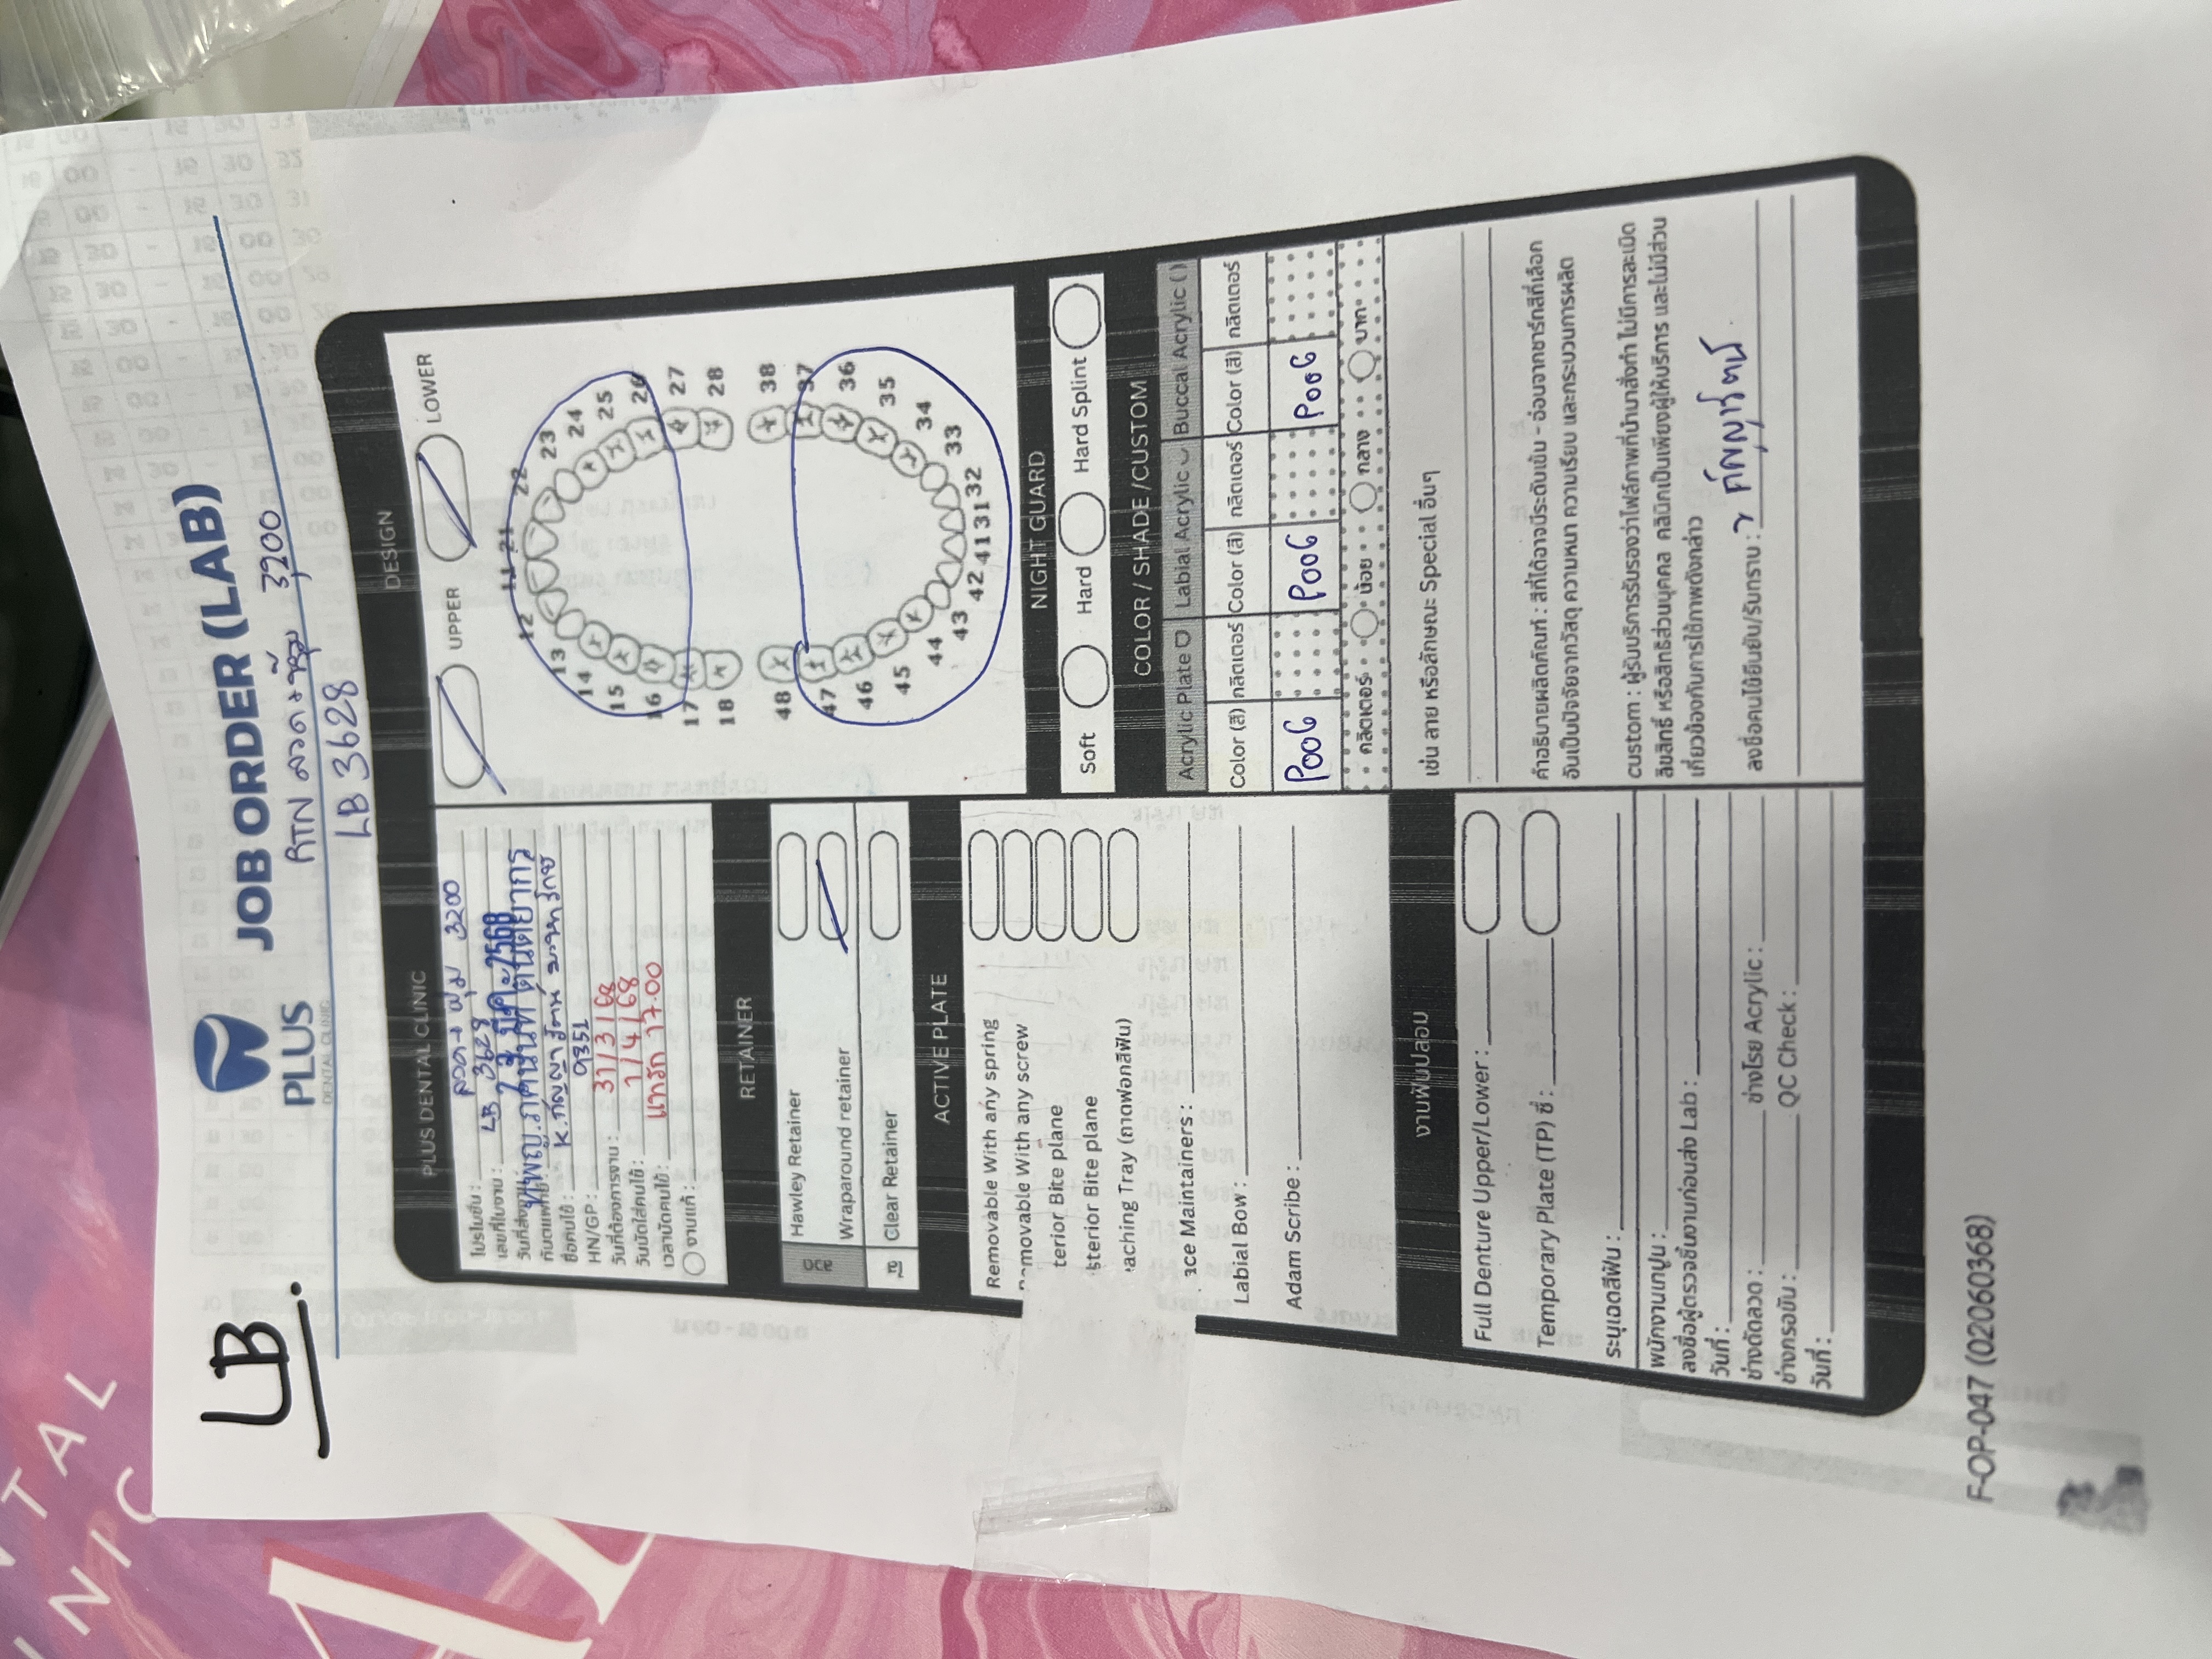 LB.
PLUS
DENTAL CLINIC
JOB ORDER (LAB)
RTN ลวด+หุ้ม 3,200
LB 3628
PLUS DENTAL CLINIC
โปรโมชั่น : ลวด+หุ้ม 3200
เลขที่ใบงาน : LB 3628
วันที่ส่งงาน 2568
ทันตแพทย์ ทพญ.
ชื่อคนไข้ :
HN/GP : 9351
วันที่ต้องการงาน : 31/3/68
วันนัดใส่คนไข้ : 1/4/68
เวลานัดคนไข้ : 17.00
งานแก้ :
RETAINER
ลวด
Hawley Retainer
Wraparound retainer
ใส
Clear Retainer
ACTIVE PLATE
Removable With any spring
emovable With any screw
terior Bite plane
sterior Bite plane
aching Tray (ถาดฟอกสีฟัน)
ce Maintainers :
Labial Bow :
Adam Scribe :
งานฟันปลอม
Full Denture Upper/Lower :
Temporary Plate (TP) ซี่ :
ระบุเฉดสีฟัน :
พนักงานเทปูน :
ลงชื่อผู้ตรวจชิ้นงานก่อนส่ง Lab :
วันที่ :
ช่างดัดลวด : ช่างโรย Acrylic :
ช่างกรอขัด : QC Check :
วันที่ :
DESIGN
UPPER LOWER
12 11 21 22
13 23
14 24
15 25
16 26
17 27
18 28
48 38
47 37
46 36
45 35
44 34
43 33
42 41 31 32
NIGHT GUARD
Soft Hard Hard Splint
COLOR / SHADE /CUSTOM
Acrylic Plate Labial Acrylic Buccal Acrylic ( )
Color (สี) กลิตเตอร์ Color (สี) กลิตเตอร์ Color (สี) กลิตเตอร์
P006 P006 P006
กลิตเตอร์ น้อย กลาง มาก
เช่น ลาย หรือลักษณะ Special อื่นๆ
คำอธิบายผลิตภัณฑ์ : สีที่ได้อาจมีระดับเข้ม - อ่อนจากชาร์ทสีที่เลือก
อันเป็นปัจจัยจากวัสดุ ความหนา ความเรียบ และกระบวนการผลิต
custom : ผู้รับบริการรับรองว่าไฟล์ภาพที่นำมาสั่งทำ ไม่มีการละเมิด
ลิขสิทธิ์ หรือสิทธิส่วนบุคคล คลินิกเป็นเพียงผู้ให้บริการ และไม่มีส่วน
เกี่ยวข้องกับการใช้ภาพดังกล่าว
ลงชื่อคนไข้ยืนยัน/รับทราบ :
F-OP-047 (02060368)